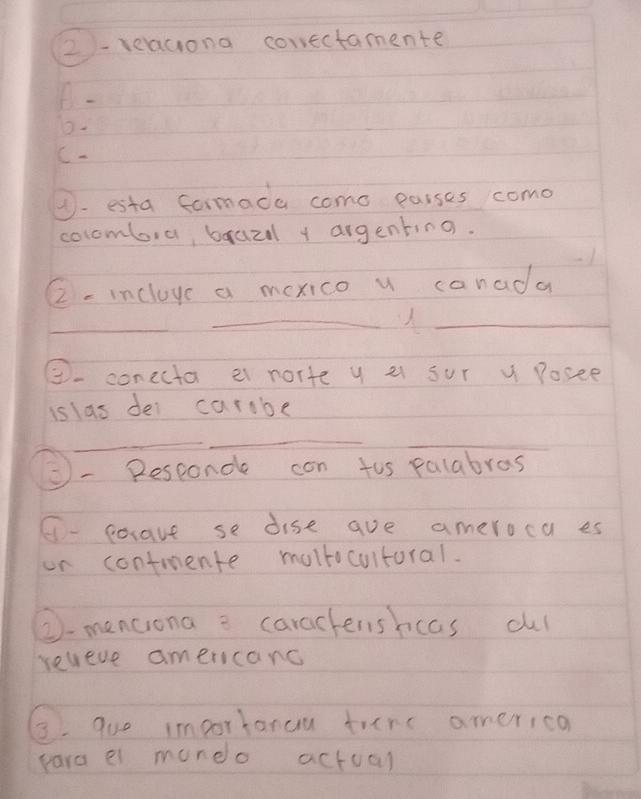 2 - relaciona correctamente
A -
b -
C -
1 - esta formada como paises como
colombia, brazil y argentina.
2 - incluye a mexico y canada
y
3 - conecta el norte y el sur y Posee
islas del caribe
3 - Responde con tus palabras
1 - porque se dise que america es
un continente multicultural.
2 - menciona 3 caracteristicas del
relieve americano
3 - que importancia tiene america
para el mundo actual